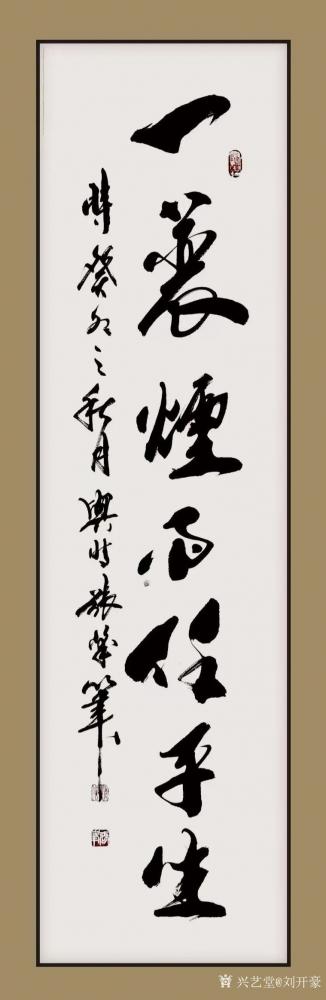 一蓑煙雨任平生
時癸卯之秋月興時振筆
兴艺堂@刘开豪